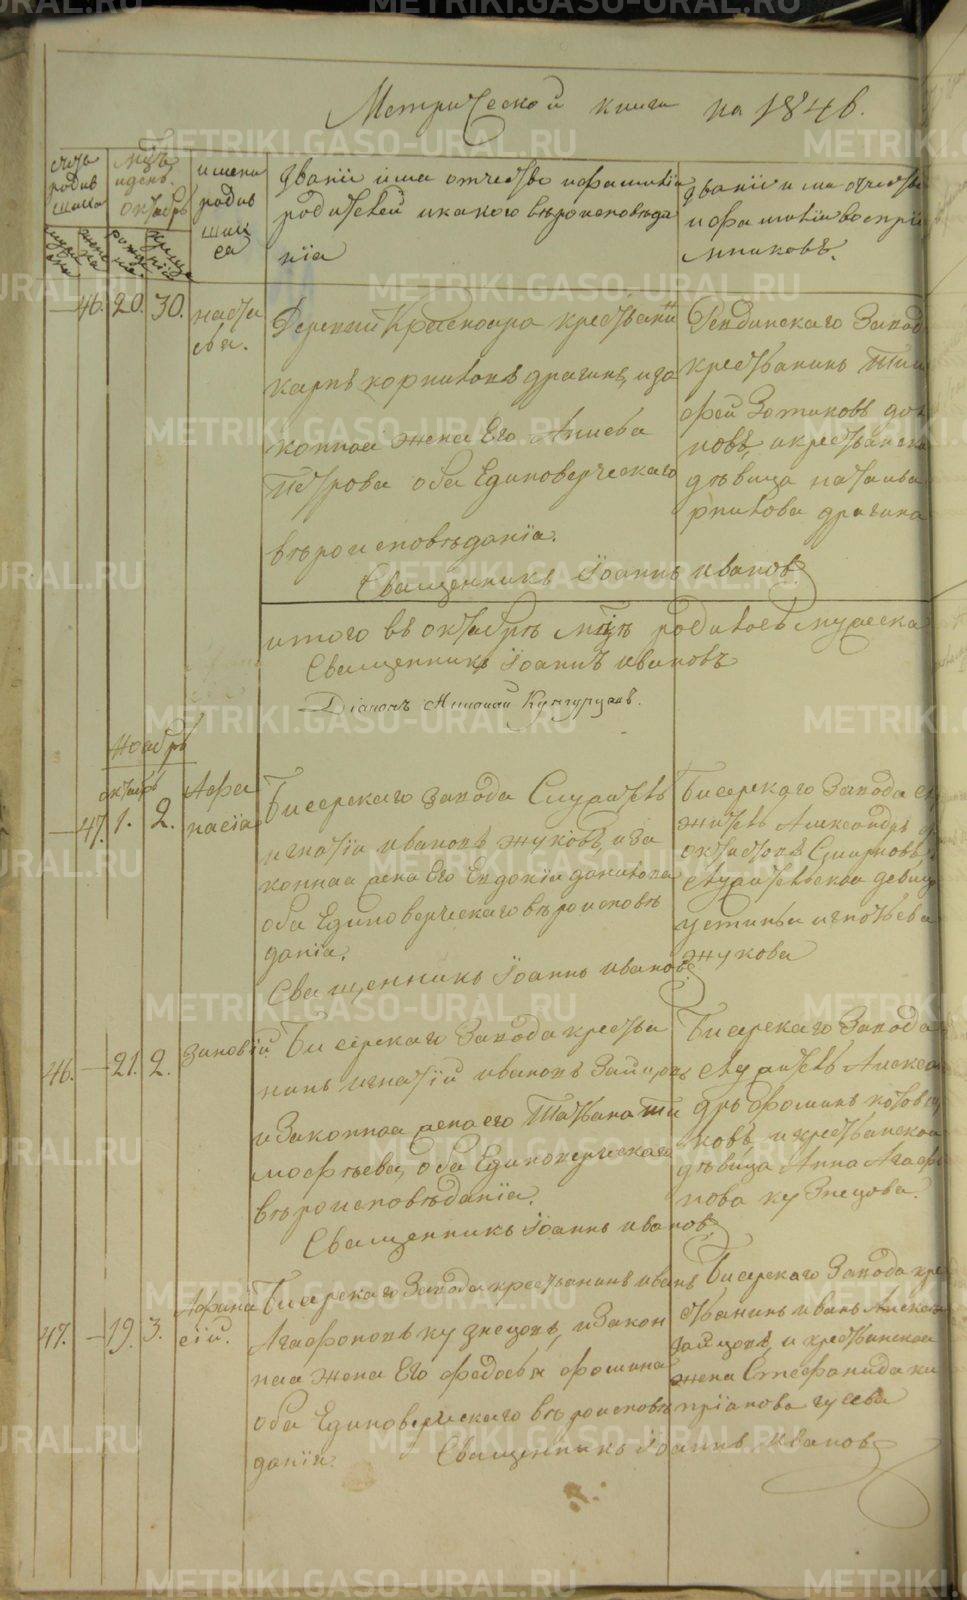 Метрической книги на 1846.
счетъ родив шихся
мѣць и день. октябрь
имена родив шихся
муж женс ка рожде нія креще нія
Званіе имя отчество и фамилія
родителей и какого вѣроисповѣда
нія
Званіе имя отчество
и фамилія воспріе
мниковъ.
46. 20. 30. настасья.
Деревни Краснояра крестьянинъ
карпъ корниловъ драгинъ, и за
конная жена Его Анисья
Петрова оба Единоверческаго
вѣроисповѣданія.
Священникъ Іоаннъ ивановъ
завода
крестьянинъ Тимо
фей Зотиковъ
новъ, и крестьянска
дѣвица наталья
рнилова драгина
итого въ октябрѣ мцѣ родилось мужеска
Священникъ Іоаннъ ивановъ
Діаконъ Николай Кунгурцовъ.
Ноябрь
октябрь
47. 1. 2. Афа насія
Бисерскаго завода Служитель
игнатій ивановъ жуковъ, и за
конная жена Его Евдокія данилова
оба Единоверческаго вѣроисповѣ
данія.
Священникъ Іоаннъ ивановъ
Бисерскаго Завода слу
житель Александръ
Смирновъ,
служительская девица
устинья игнатьева
жукова
46. 21. 2. Зиновій
Бисерскаго Завода крестья
нинъ игнатій ивановъ
и Законная жена его Татьяна Ти
мофѣева, оба Единоверческаго
вѣроисповѣданія.
Священникъ Іоаннъ ивановъ
Бисерскаго Завода
служитель Алексан
дръ фоминъ котовщи
ковъ, и крестьянская
дѣвица Анна Агафо
нова кузнецова.
47. 19. 3. Афина сій.
Бисерскаго Завода крестьянинъ иванъ
Агафоновъ кузнецовъ, и Закон
ная жена Его федосья фомина
оба Единоверческаго вѣроисповѣ
данія. Священникъ Іоаннъ ивановъ
Бисерскаго Завода кре
стьянинъ иванъ Алексѣ
зайцовъ, и крестьянская
жена Стефанида ки
пріанова гусева
METRIKI.GASO-URAL.RU